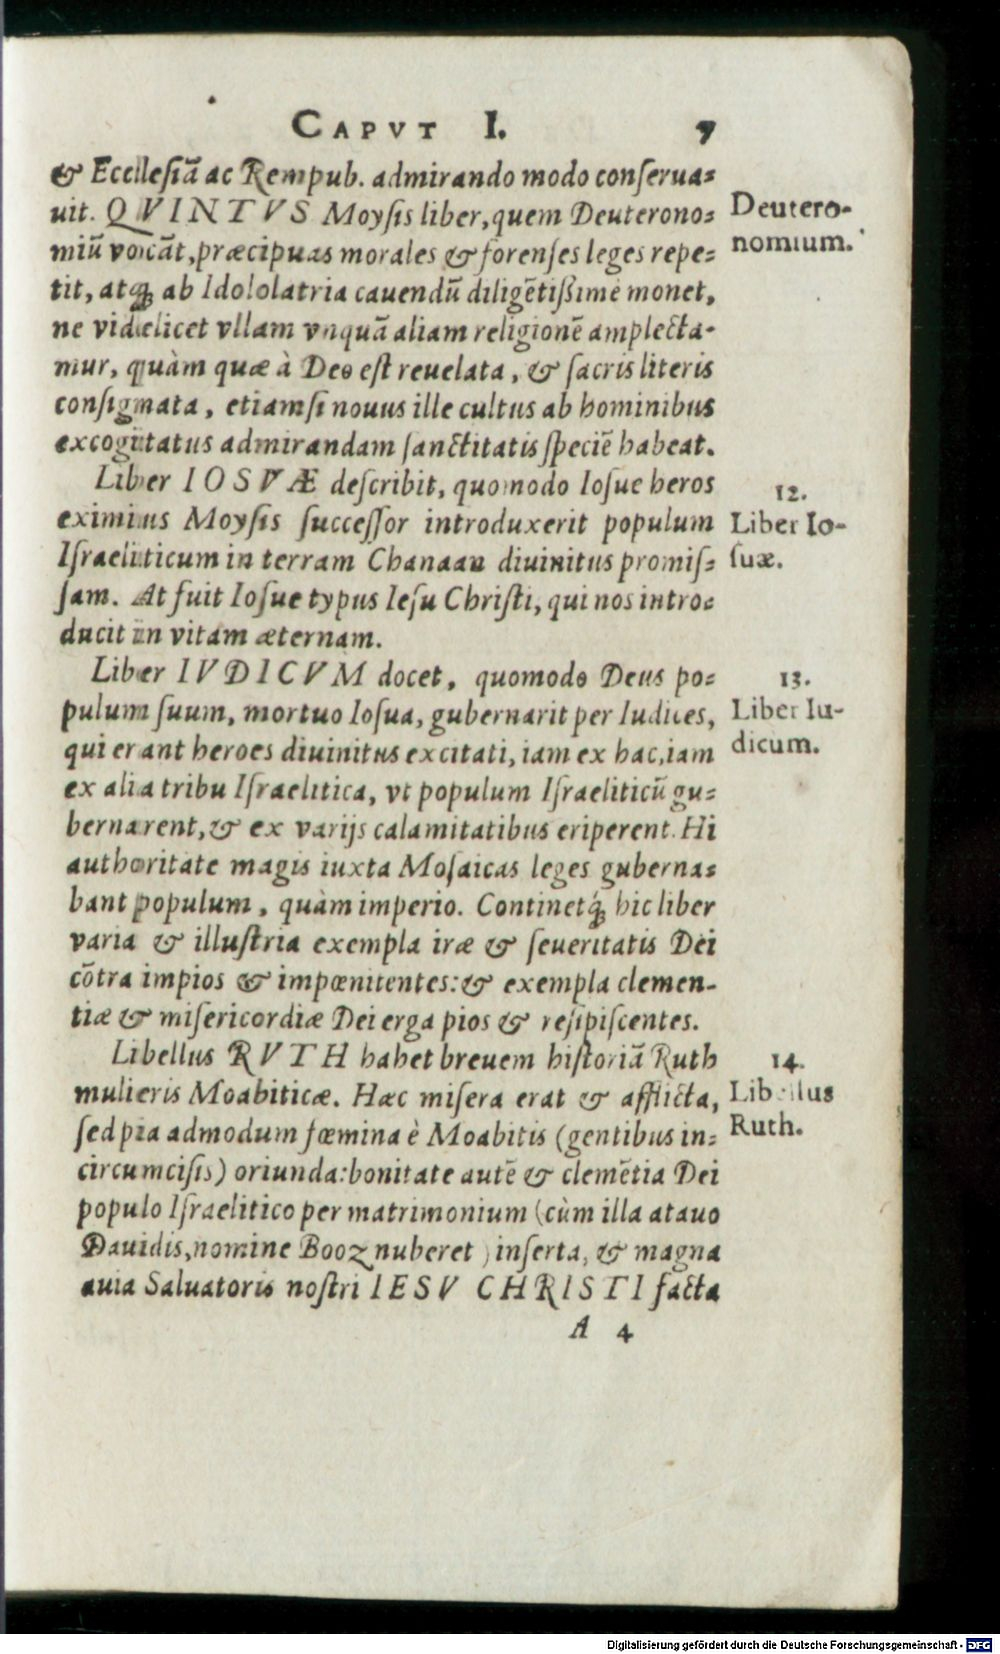 CAPVT I. 7
& Ecclesiã ac Rempub. admirando modo conserua-
uit. QVINTVS Moysis liber, quem Deuterono-
miũ vocãt, præcipuas morales & forenses leges repe-
tit, atq; ab Idololatria cauendũ diligẽtißimè monet,
ne videlicet vllam vnquã aliam religionẽ amplecta-
mur, quàm quæ à Deo est reuelata, & sacris literis
consignata, etiamsi nouus ille cultus ab hominibus
excogitatus admirandam sanctitatis speciẽ habeat.
Liber IOSVÆ describit, quomodo Iosue heros
eximius Moysis successor introduxerit populum
Israeliticum in terram Chanaan diuinitus promis-
sam. At fuit Iosue typus Iesu Christi, qui nos intro-
ducit in vitam æternam.
Liber IVDICVM docet, quomodo Deus po-
pulum suum, mortuo Iosua, gubernarit per Iudices,
qui erant heroes diuinitus excitati, iam ex hac, iam
ex alia tribu Israelitica, vt populum Israeliticũ gu-
bernarent, & ex varijs calamitatibus eriperent. Hi
authoritate magis iuxta Mosaicas leges guberna-
bant populum, quàm imperio. Continetq́; hic liber
varia & illustria exempla iræ & seueritatis Dei
cõtra impios & impœnitentes: & exempla clemen-
tiæ & misericordiæ Dei erga pios & resipiscentes.
Libellus RVTH habet breuem historiã Ruth
mulieris Moabiticæ. Hæc misera erat & afflicta,
sed pia admodum fœmina è Moabitis (gentibus in-
circumcisis) oriunda: bonitate autẽ & clemẽtia Dei
populo Israelitico per matrimonium (cùm illa atauo
Dauidis, nomine Booz nuberet) inserta, & magna
auia Saluatoris nostri IESV CHRISTI facta
A 4
Deutero-
nomium.
12.
Liber Io-
suæ.
13.
Liber Iu-
dicum.
14.
Libellus
Ruth.
Digitalisierung gefördert durch die Deutsche Forschungsgemeinschaft - DFG